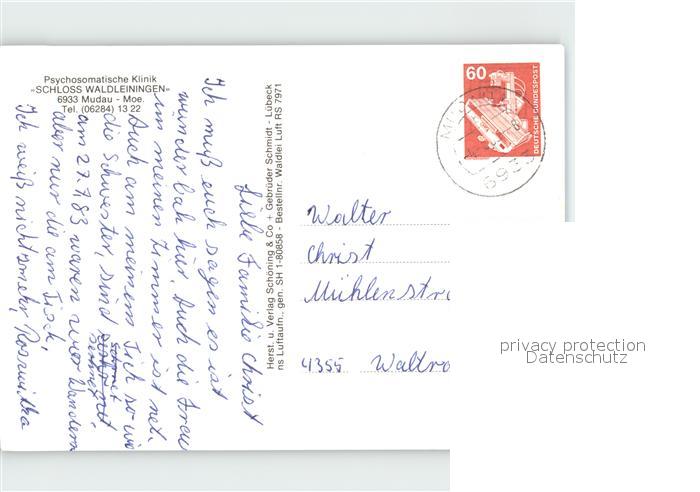 Psychosomatische Klinik
»SCHLOSS WALDLEININGEN«
6933 Mudau - Moe.
Tel. (06284) 13 22
Liebe Familie Christ
Ich muß euch sagen es ist
wunderbah hir. Auch die Frau
im meinen Zimmer ist net.
Auch am meinem Tich so wie
die Schwester, sind
am 27.7.83 waren wier Wandern
aber nur die am Tisch,
Ich weiß nicht mehr,
Herst. u. Verlag Schöning & Co + Gebrüder Schmidt - Lübeck
ns Luftaufn., gen. SH 1-80858 - Bestellnr. Waldlei Luft RS 7971
60
DEUTSCHE BUNDESPOST
693
Walter
Christ
Mühlenstr
4355 Waltro
privacy protection
Datenschutz